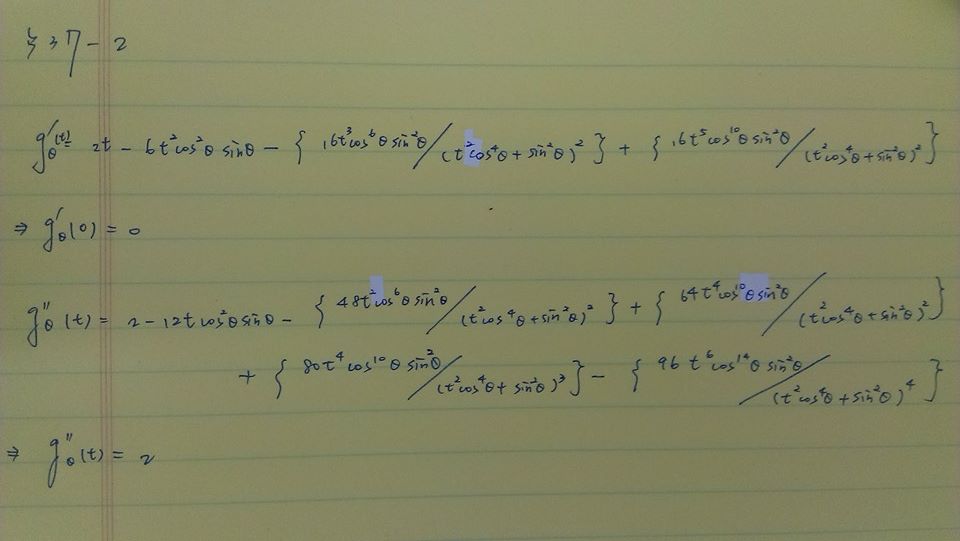 g'θ(t) = 2t - 6t²cos²θ sinθ - { 16t³cos⁶θ sin²θ / (t²cos⁴θ + sin²θ)² } + { 16t⁵cos¹⁰θ sin²θ / (t²cos⁴θ + sin²θ)² }
⇒ g'θ(0) = 0
g''θ(t) = 2 - 12t cos²θ sinθ - { 48t²cos⁶θ sin²θ / (t²cos⁴θ + sin²θ)² } + { 64t⁴cos¹⁰θ sin²θ / (t²cos⁴θ + sin²θ)² }
+ { 80t⁴cos¹⁰θ sin²θ / (t²cos⁴θ + sin²θ)³ } - { 96t⁶cos¹⁴θ sin²θ / (t²cos⁴θ + sin²θ)⁴ }
⇒ g''θ(t) = 2